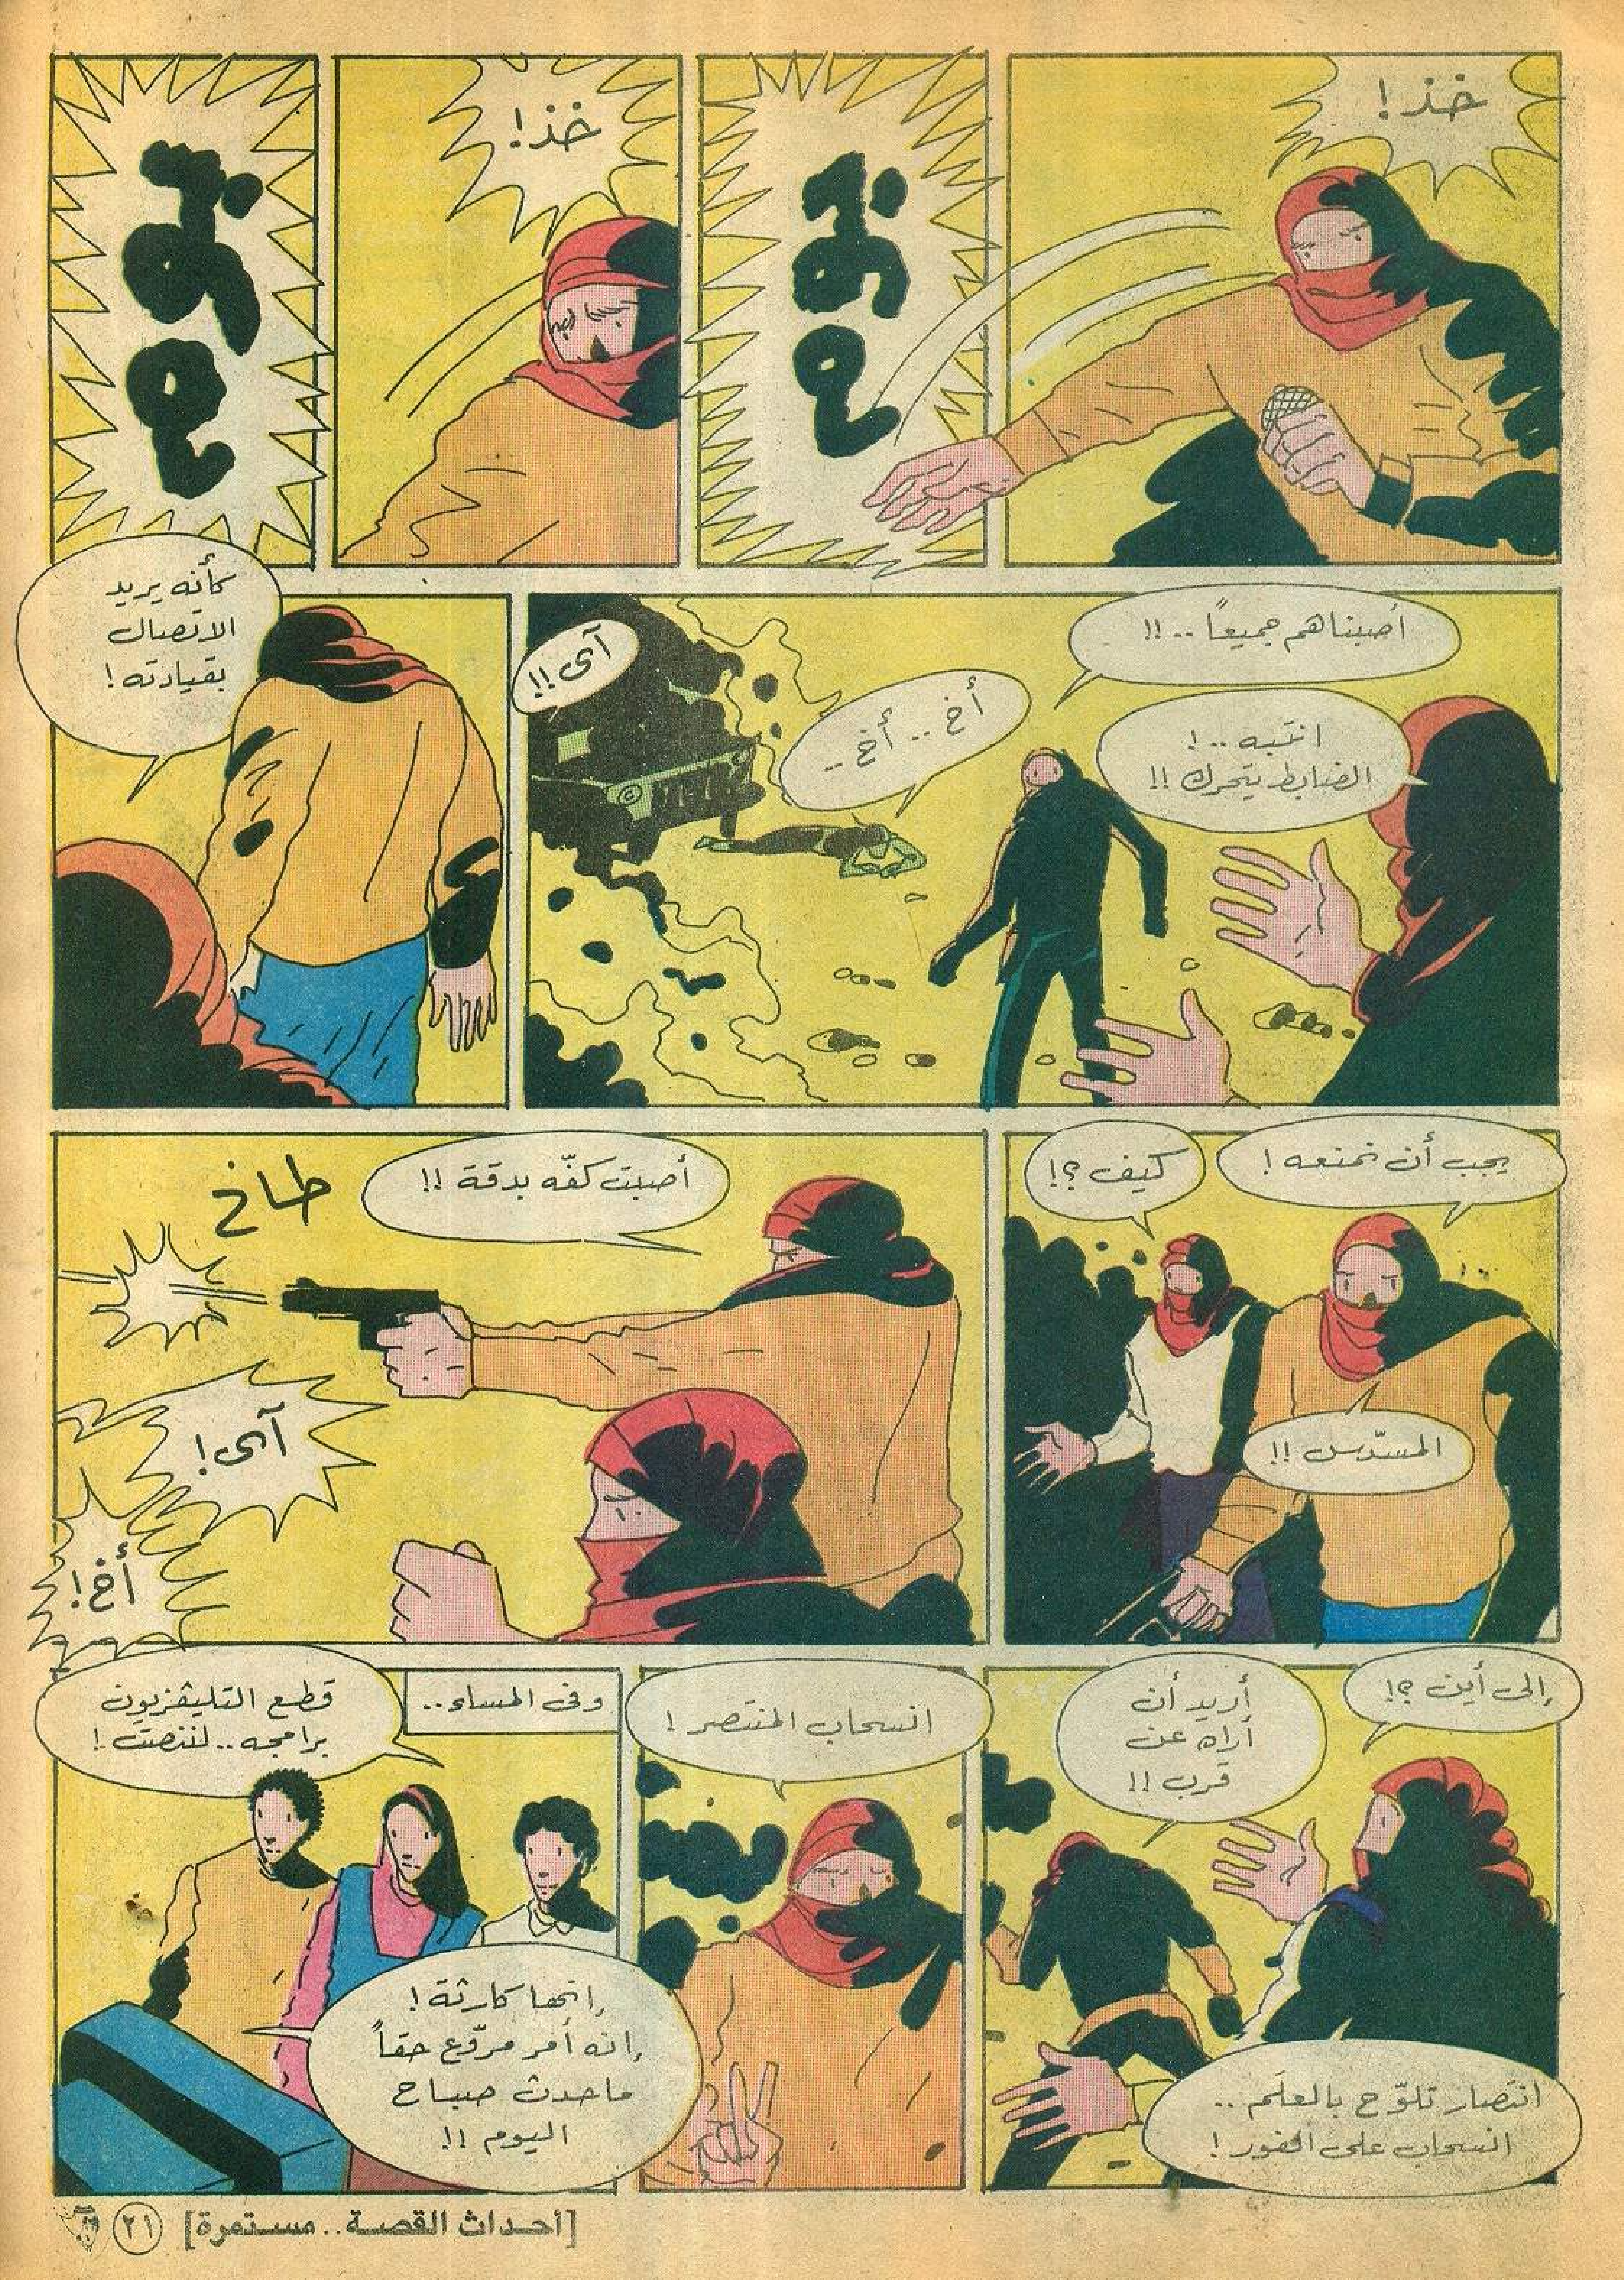 خذ!
بوم
خذ!
بوم
أصبناهم جميعاً..!!
انتبه..!
الضابط يتحرك!!
أخ.. أخ..
آى!!
كأنه يريد
الاتصال
بقيادته!
يجب أن نمنعه!
كيف؟!
المسدّس!!
أصبت كفّه بدقة!!
طاخ
آى!
أخ!
إلى أين؟!
أريد أن
أراه عن
قرب!!
انتصار تلوّح بالعلَم..
انسحاب على الفور!
انسحاب المنتصر!
وفى المساء..
قطع التليفزيون
برامجه.. لننصت!
إنها كارثة!
إنه أمر مروّع حقاً
ماحدث صباح
اليوم!!
[أحداث القصة.. مستمرة]
٢١